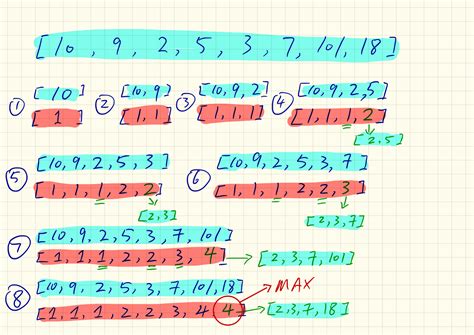 [10, 9, 2, 5, 3, 7, 101, 18]
① [10] ② [10, 9] ③ [10, 9, 2] ④ [10, 9, 2, 5]
[1] [1, 1] [1, 1, 1] [1, 1, 1, 2]
[2, 5]
⑤ [10, 9, 2, 5, 3] ⑥ [10, 9, 2, 5, 3, 7]
[1, 1, 1, 2, 2] [1, 1, 1, 2, 2, 3]
[2, 3] [2, 3, 7]
⑦ [10, 9, 2, 5, 3, 7, 101]
[1, 1, 1, 2, 2, 3, 4] → [2, 3, 7, 101]
⑧ [10, 9, 2, 5, 3, 7, 101, 18] MAX
[1, 1, 1, 2, 2, 3, 4 4] → [2, 3, 7, 18]